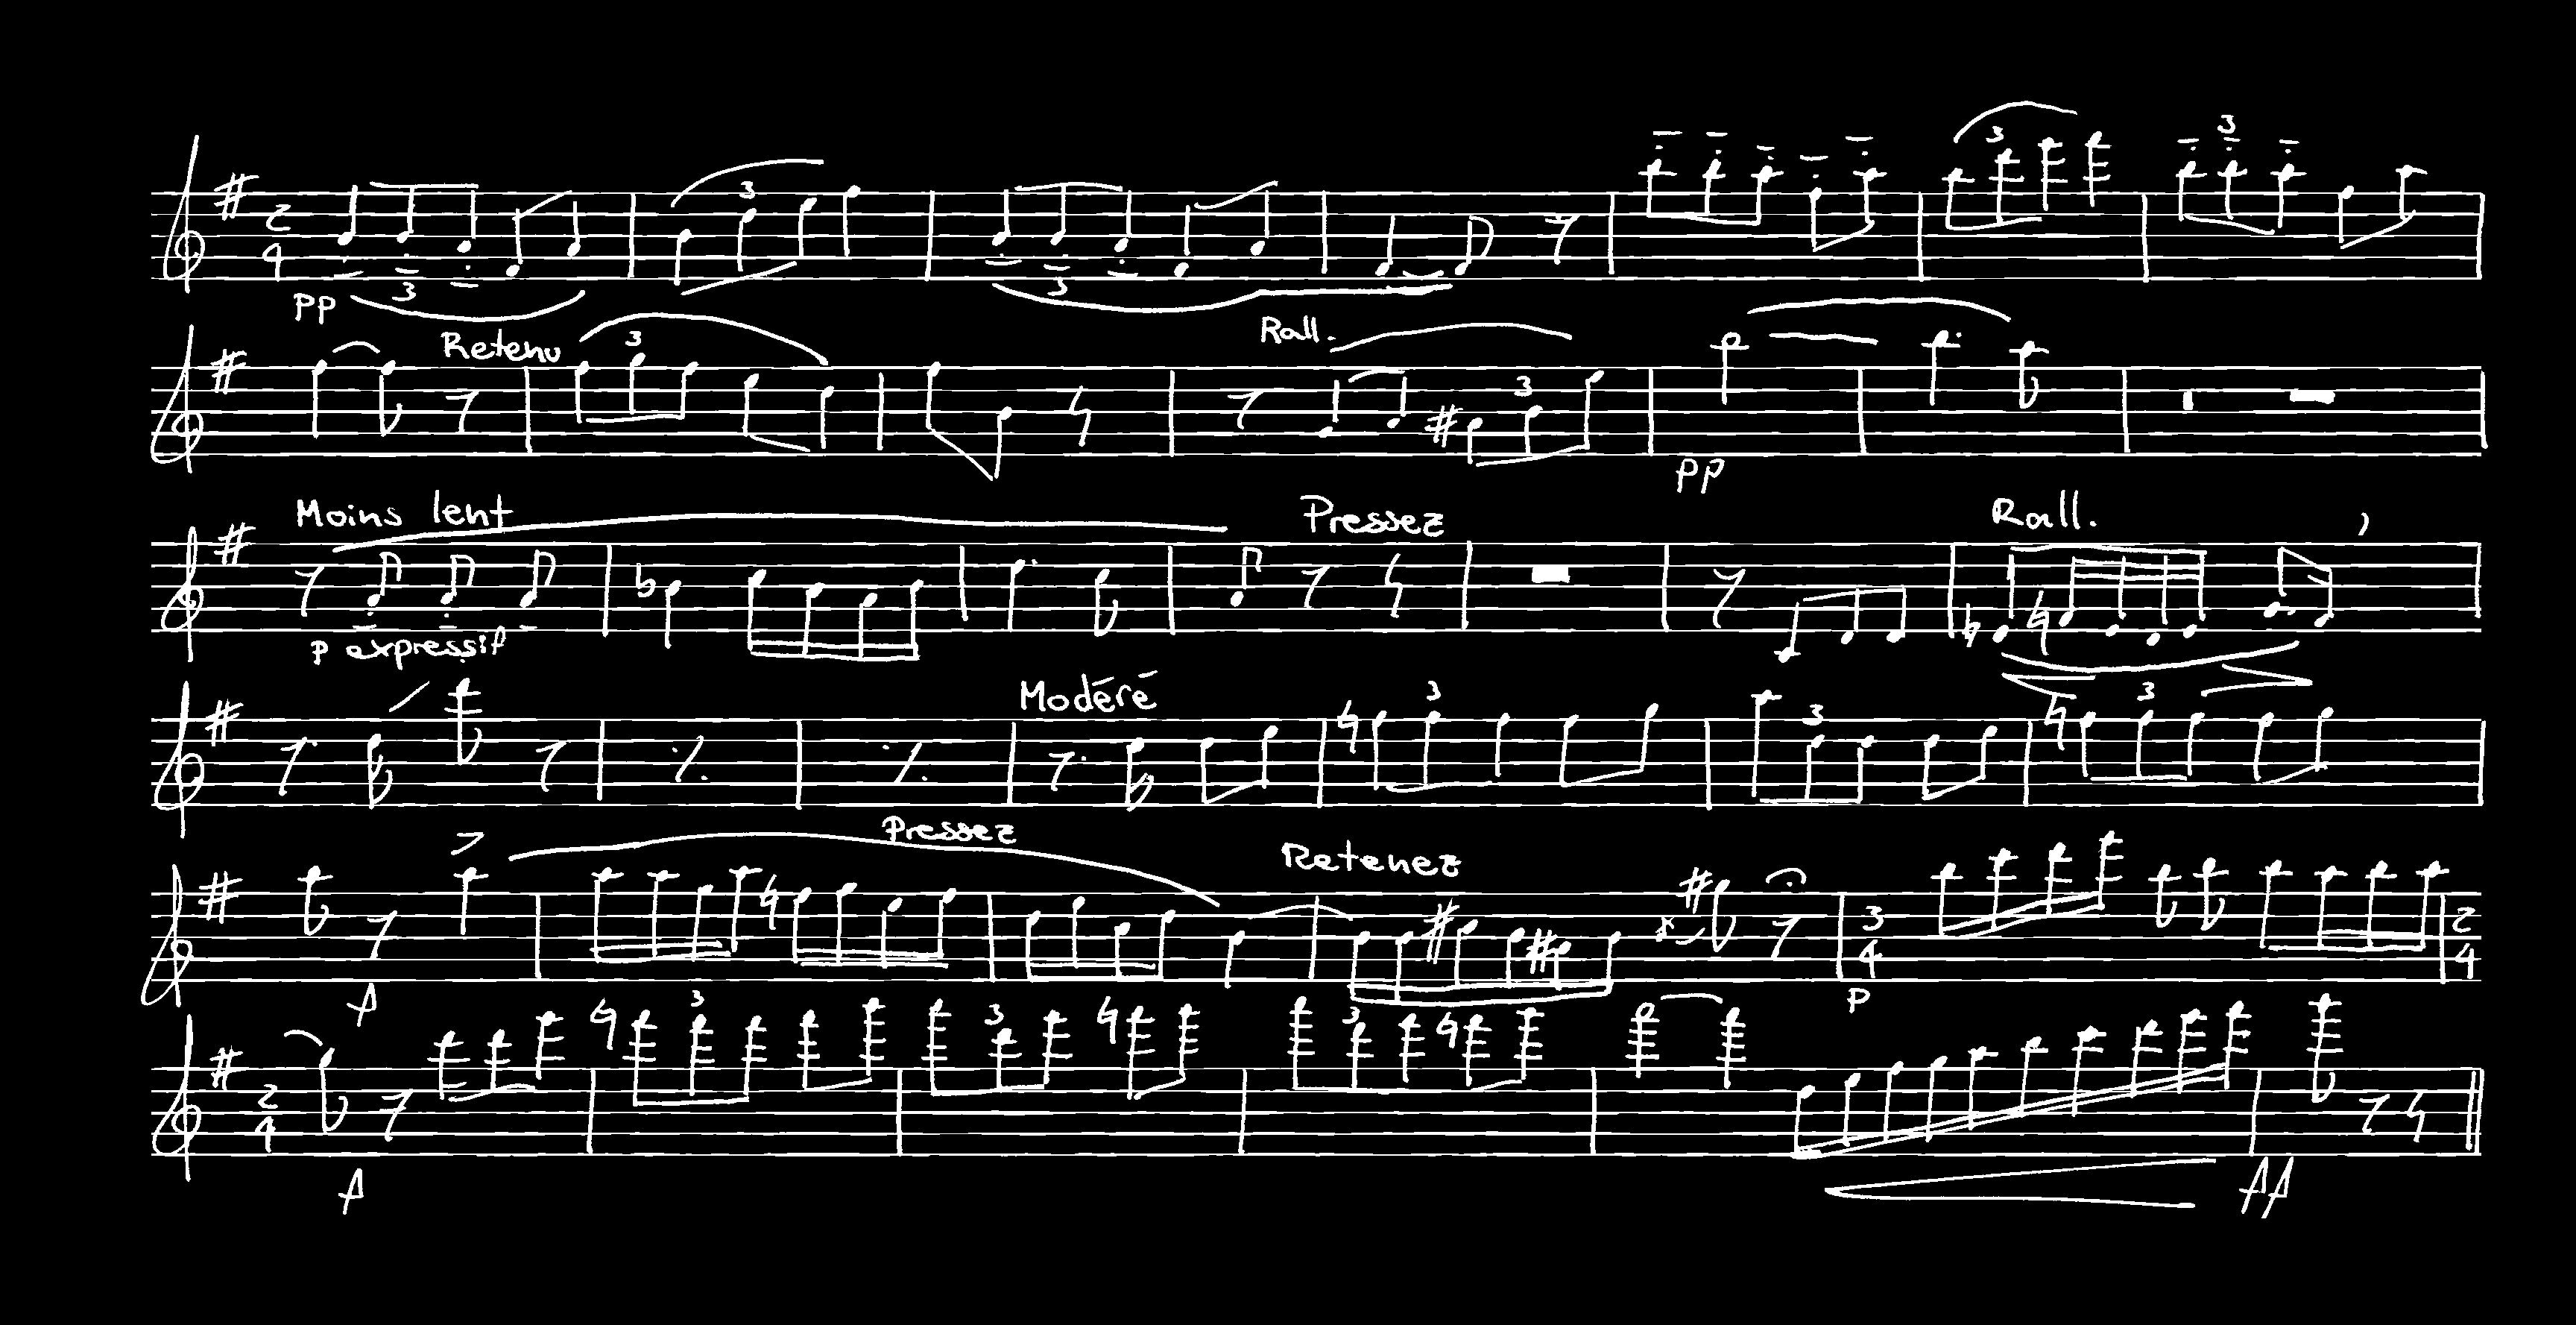 2 4 3 3 3 3
pp 3 3
Retenu 3 Rall. 3
pp
Moins lent Pressez Rall. ,
p expressif
Modéré 3 3 3
Pressez
Retenez
3 4 2 4
f p
3 3 3
2 4
f ff